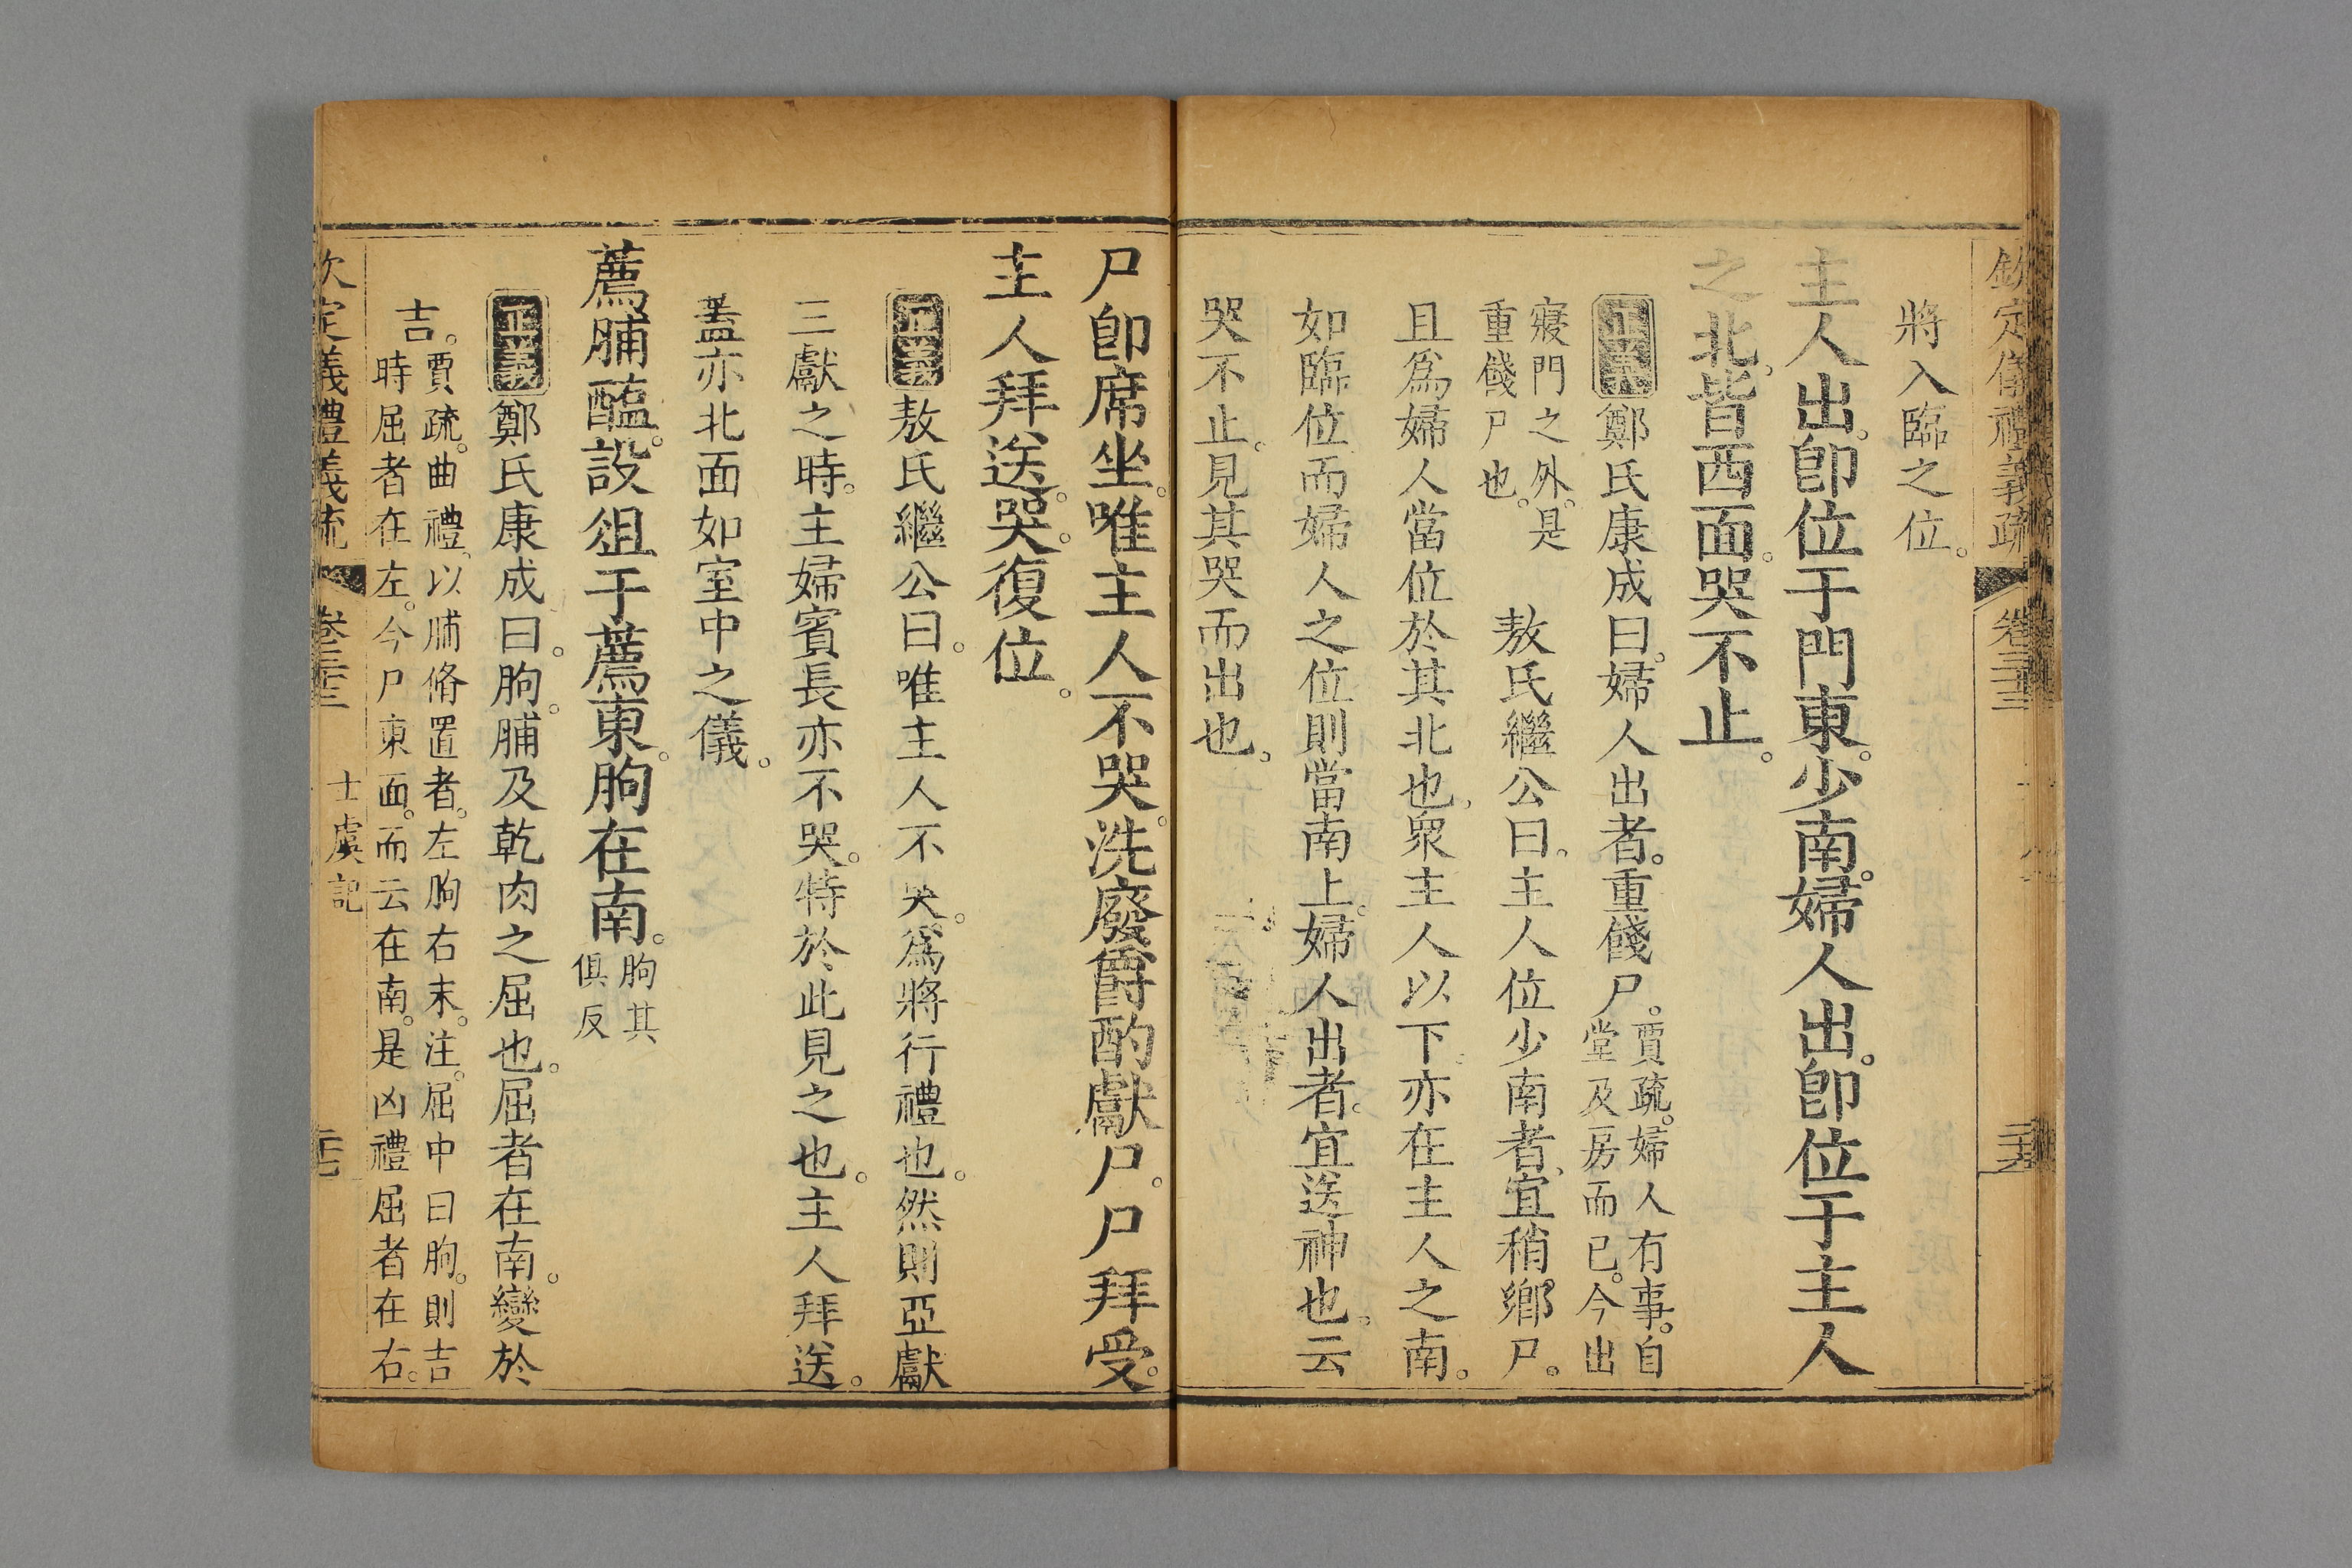 欽定儀禮義疏 卷三十三 二十六
將入臨之位。
主人出。卽位于門東。少南。婦人出。卽位于主人
之北。皆西面。哭不止。
正義 鄭氏康成曰。婦人出者。重餞尸。賈疏。婦人有事。自
堂及房而已。今出
寢門之外。是
重餞尸也。 敖氏繼公曰。主人位少南者、宜稍鄉尸。
且爲婦人當位於其北也、衆主人以下。亦在主人之南。
如臨位而婦人之位則當南上。婦人出者。宜送神也。云
哭不止。見其哭而出也。
尸卽席坐。唯主人不哭。洗廢爵酌獻尸。尸拜受。
主人拜送。哭。復位。
正義 敖氏繼公曰。唯主人不哭。爲將行禮也。然則亞獻
三獻之時。主婦賓長亦不哭。特於此見之也。主人拜送。
蓋亦北面如室中之儀。
薦脯醢。設俎于薦東。朐在南。朐其
俱反
正義 鄭氏康成曰。朐。脯及乾肉之屈也。屈者在南。變於
吉。賈疏。曲禮、以脯脩置者。左朐右末。注。屈中曰朐。則吉
時屈者在左。今尸東面。而云在南。是凶禮屈者在右。
欽定儀禮義疏 卷三十三 士虞記 二十七